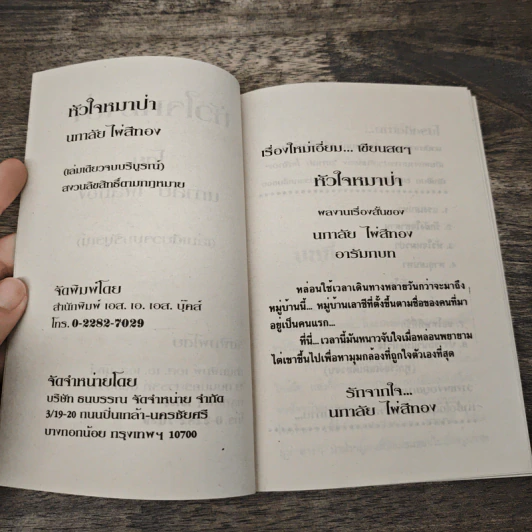 หัวใจหมาป่า
นกาลัย ไผ่สีทอง
(เล่มเดียวจบบริบูรณ์)
สงวนลิขสิทธิ์ตามกฎหมาย
จัดพิมพ์โดย
สำนักพิมพ์ เอส. เอ. เอส. บุ๊คส์
โทร. 0-2282-7029
จัดจำหน่ายโดย
บริษัท ธนบรรณ จัดจำหน่าย จำกัด
3/19-20 ถนนปิ่นเกล้า-นครชัยศรี
บางกอกน้อย กรุงเทพฯ 10700
เรื่องใหม่เอี่ยม... เขียนสดๆ
หัวใจหมาป่า
ผลงานเรื่องสั้นของ
นกาลัย ไผ่สีทอง
อารัมภบท
หล่อนใช้เวลาเดินทางหลายวันกว่าจะมาถึง
หมู่บ้านนี้... หมู่บ้านเลาซีที่ตั้งขึ้นตามชื่อของคนที่มา
อยู่เป็นคนแรก...
ที่นี่... เวลานี้มันหนาวจับใจเมื่อหล่อนพยายาม
ไต่เขาขึ้นไปเพื่อหามุมกล้องที่ถูกใจตัวเองที่สุด
รักจากใจ...
นกาลัย ไผ่สีทอง